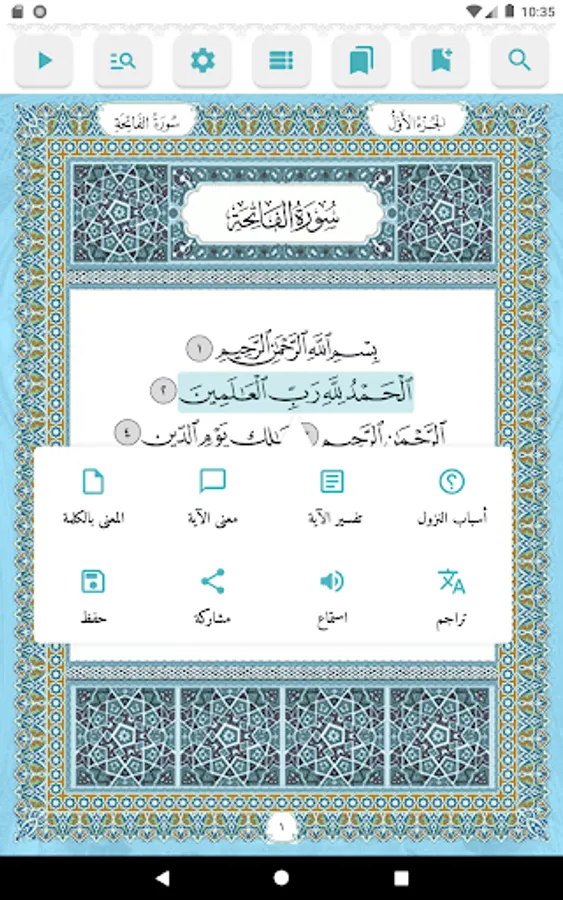 10:35
الجزء الأول
سورة الفاتحة
سُورَةُ الفَاتِحَةِ
بِسْمِ ٱللَّهِ ٱلرَّحْمَٰنِ ٱلرَّحِيمِ ١
ٱلْحَمْدُ لِلَّهِ رَبِّ ٱلْعَٰلَمِينَ ٢
ٱلرَّحْمَٰنِ ٱلرَّحِيمِ مَٰلِكِ يَوْمِ ٱلدِّينِ ٤
أسباب النزول
تفسير الآية
معنى الآية
المعنى بالكلمة
تراجم
استماع
مشاركة
حفظ
١